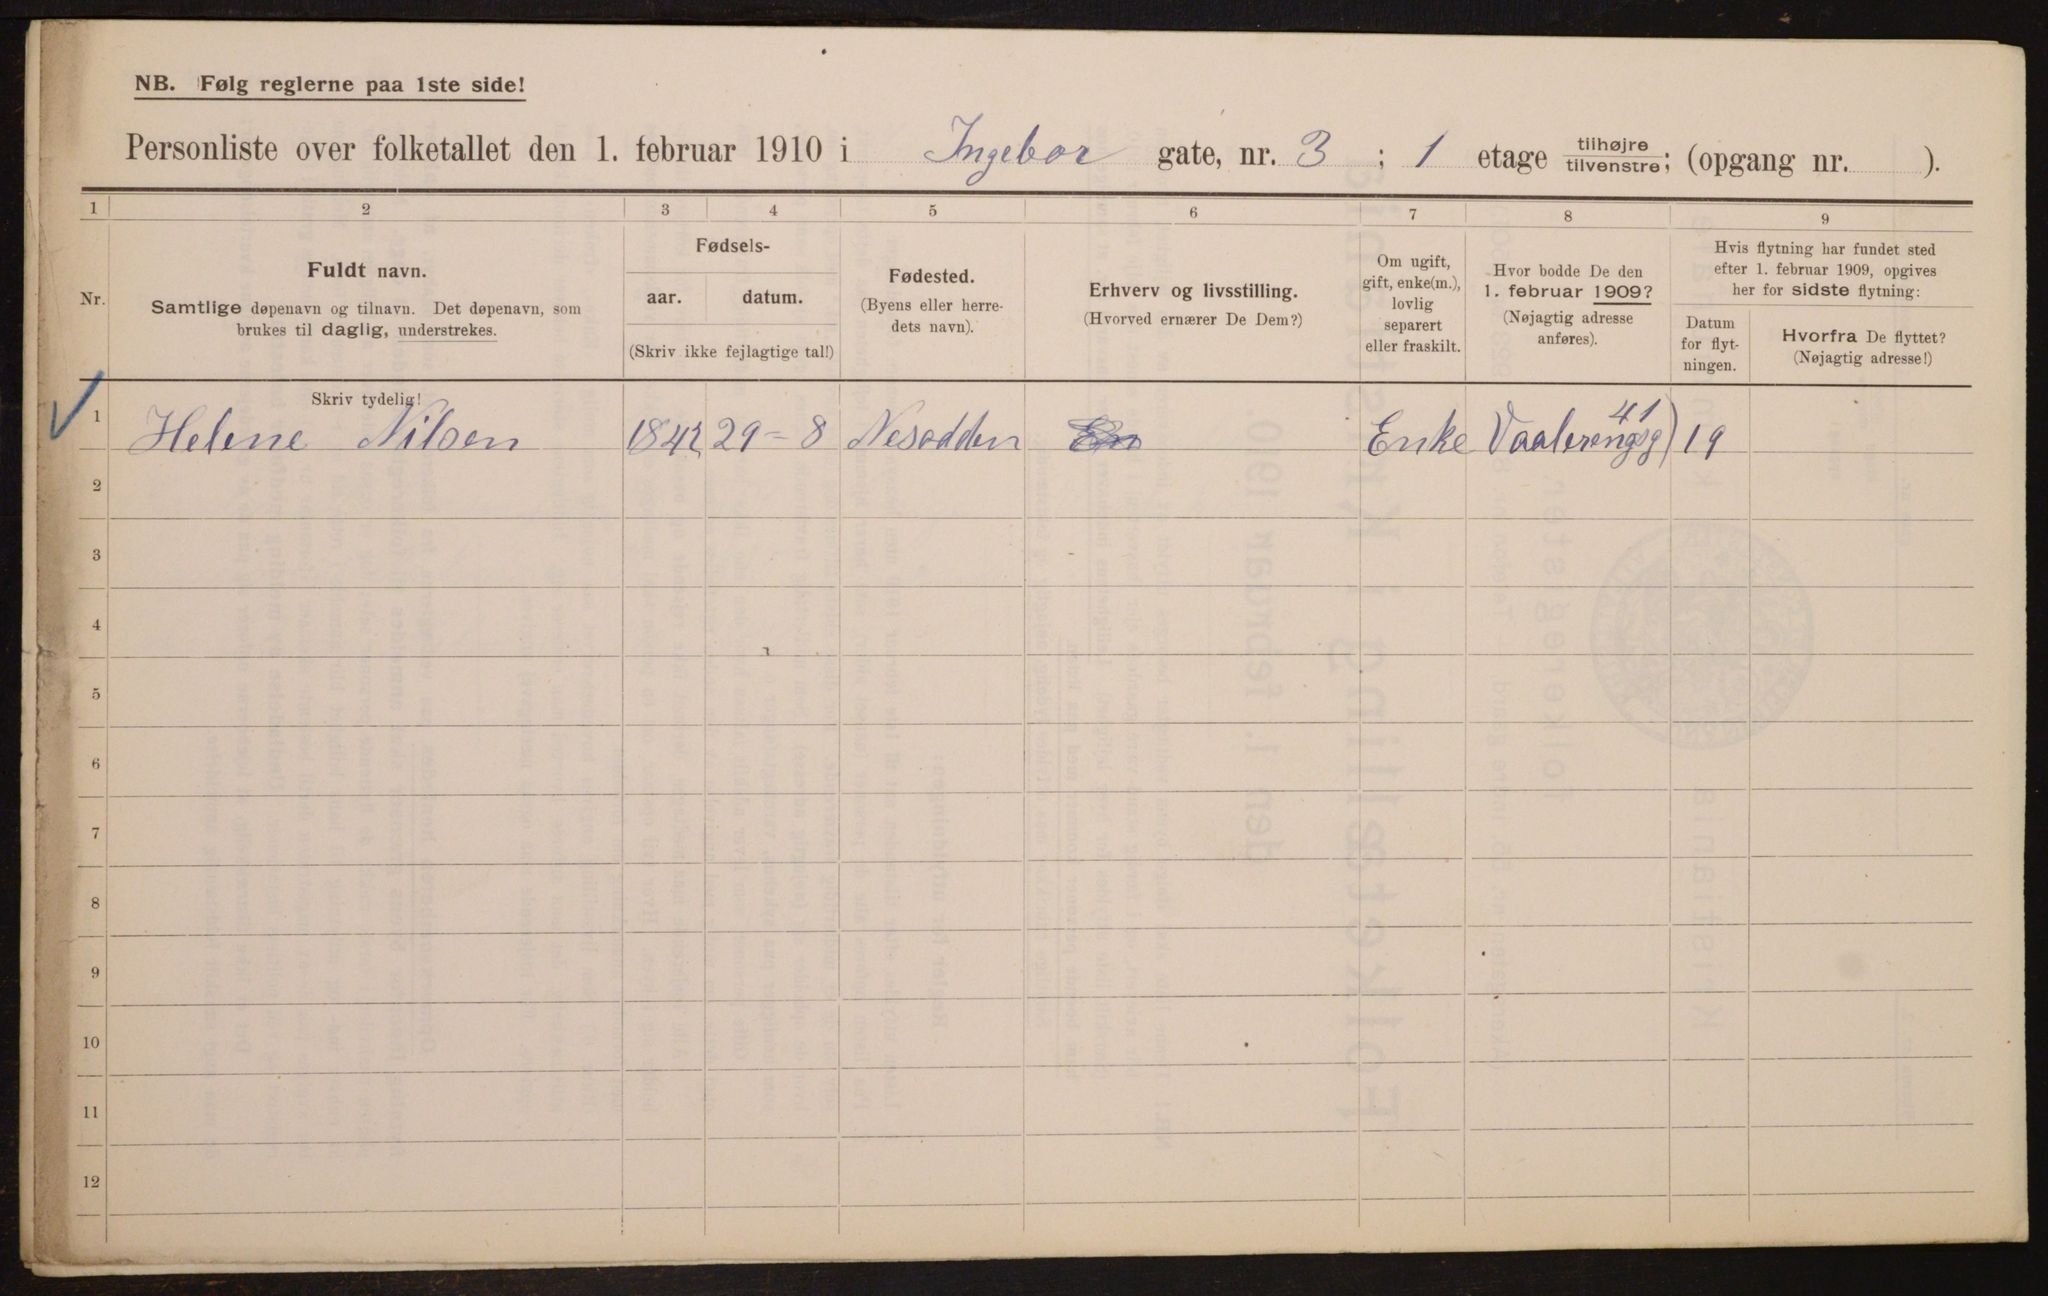 NB. Følg reglerne paa 1ste side!
Personliste over folketallet den 1. februar 1910 i Ingebor gate, nr. 3 ; 1 etage tilhøjre/tilvenstre; (opgang nr. ).
1 2 3 4 5 6 7 8 9
Nr.
Fuldt navn.
Samtlige døpenavn og tilnavn. Det døpenavn, som
brukes til daglig, understrekes.
Fødsels-
aar. datum.
(Skriv ikke fejlagtige tal!)
Fødested.
(Byens eller herre-
dets navn).
Erhverv og livsstilling.
(Hvorved ernærer De Dem?)
Om ugift,
gift, enke(m.),
lovlig
separert
eller fraskilt.
Hvor bodde De den
1. februar 1909?
(Nøjagtig adresse
anføres).
Hvis flytning har fundet sted
efter 1. februar 1909, opgives
her for sidste flytning:
Datum
for flyt-
ningen.
Hvorfra De flyttet?
(Nøjagtig adresse!)
Skriv tydelig!
1 Helene Nilsen 1842 29-8 Nesodden Enke Vaalerengsg 41 19
2
3
4
5
6
7
8
9
10
11
12